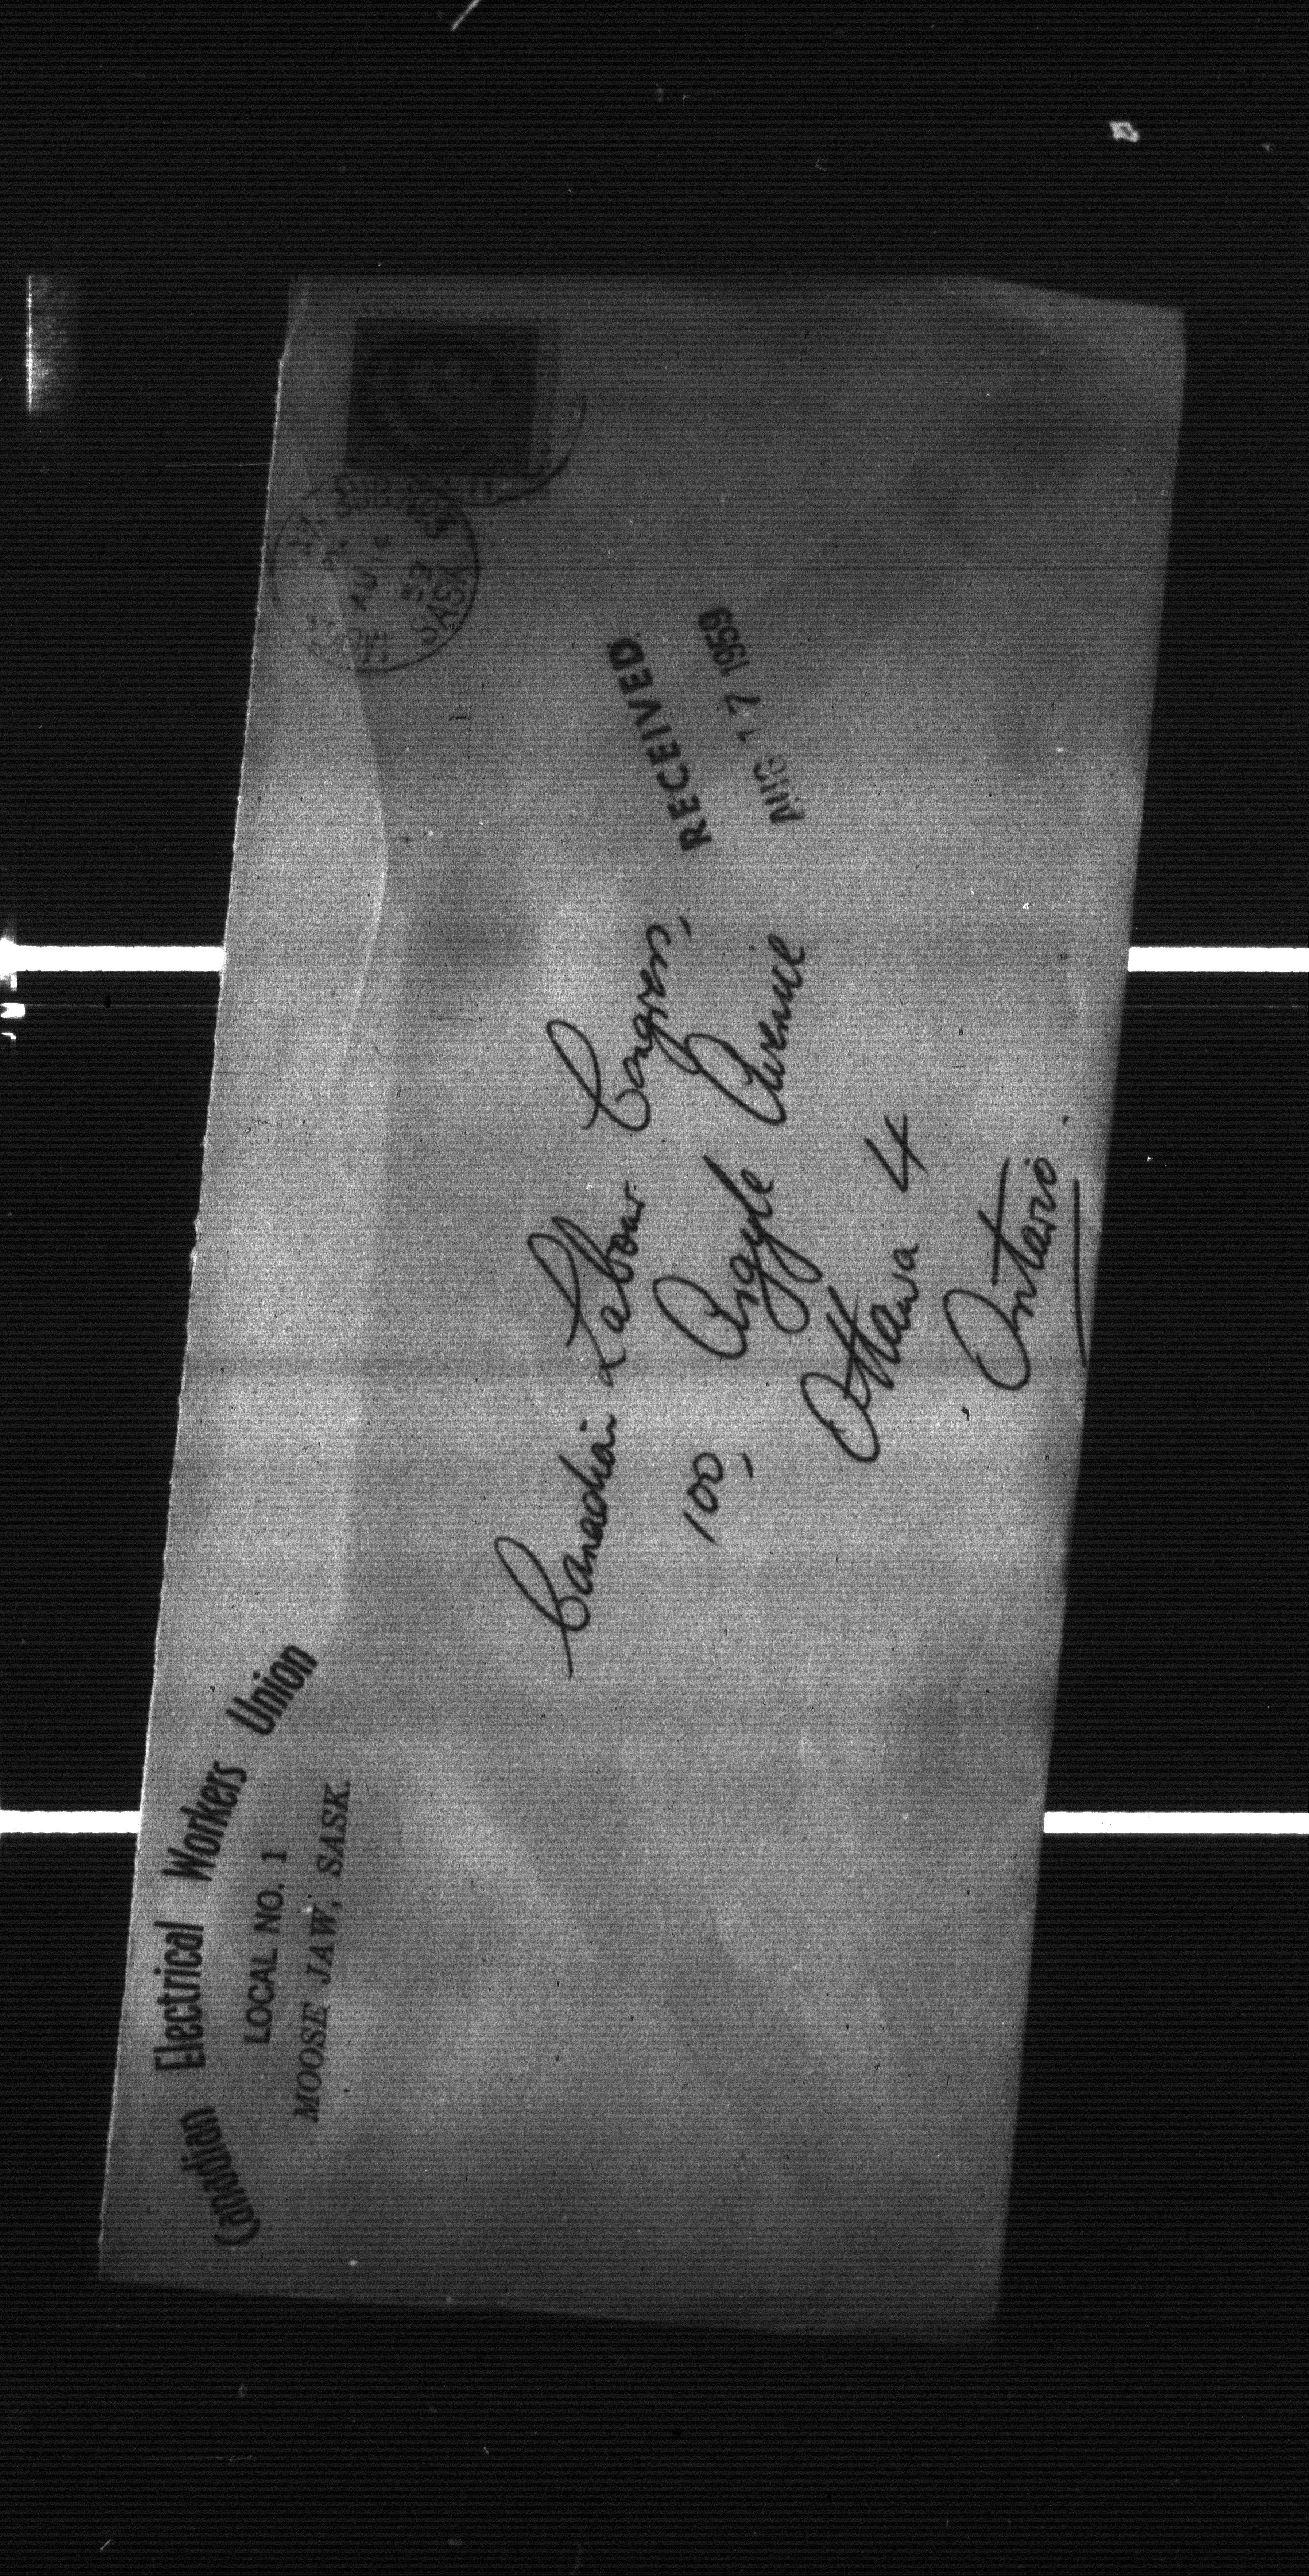 Canadian Electrical Workers Union
LOCAL NO. 1
MOOSE JAW, SASK.
AU 14
59
SASK
RECEIVED
AUG 17 1959
Canadian Labour Congress,
100, Argyle Avenue
Ottawa 4
Ontario.